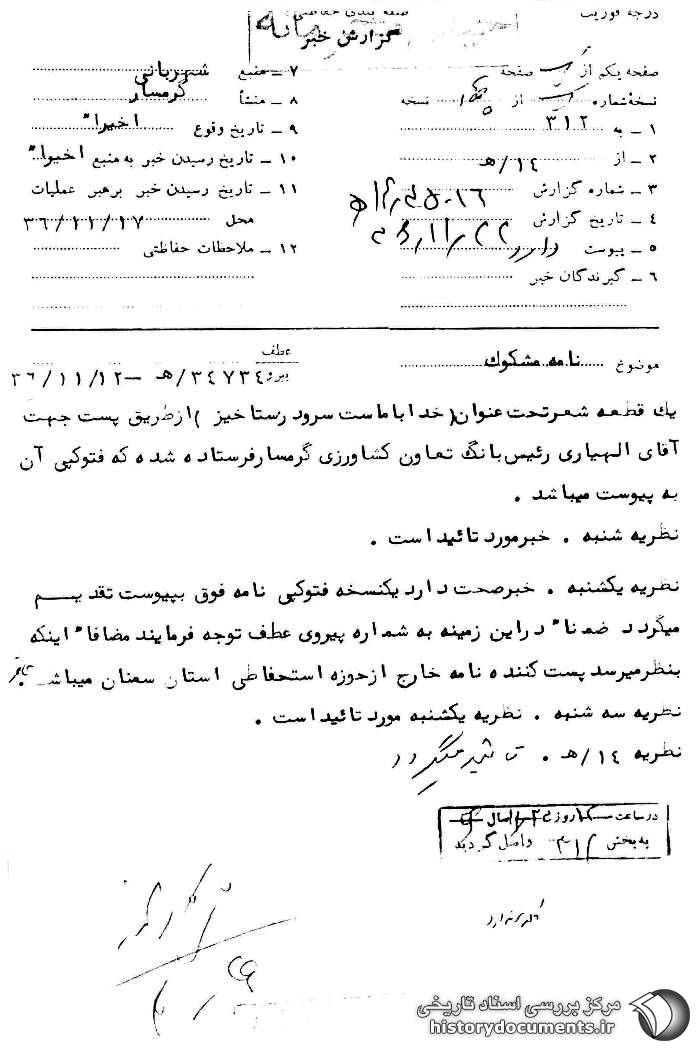 درجه فوریت
طبقه بندی حفاظتی
گزارش خبر
صفحه یکم از یک صفحه
نسخه شماره یک از نسخه
۱ ـ به ۳۱۲
۲ ـ از ۱۴/هـ
۳ ـ شماره گزارش
۴ ـ تاریخ گزارش
۵ ـ پیوست دارد
۶ ـ گیرندگان خبر
۷ ـ منبع شهربانی
۸ ـ منشأ گرمسار
۹ ـ تاریخ وقوع اخیرا"
۱۰ ـ تاریخ رسیدن خبر به منبع اخیرا"
۱۱ ـ تاریخ رسیدن خبر برهبر عملیات
محل ۳۶/۱۱/۱۷
۱۲ ـ ملاحظات حفاظتی
موضوع نامه مشکوک
عطف
پیرو ۳۴۷۳۴/هـ ـ ۳۶/۱۱/۱۲
یک قطعه شعر تحت عنوان (خدا با ماست سرود رستاخیز) از طریق پست جهت
آقای الهیاری رئیس بانگ تعاون کشاورزی گرمسار فرستاده شده که فتوکپی آن
به پیوست میباشد .
نظریه شنبه . خبر مورد تائید است .
نظریه یکشنبه . خبر صحت دارد یکنسخه فتوکپی نامه فوق بپیوست تقدیم
میگردد ضمنا" در این زمینه به شماره پیروی عطف توجه فرمایند مضافا" اینکه
بنظر میرسد پست کننده نامه خارج از حوزه استحفاظی استان سمنان میباشد
نظریه سه شنبه . نظریه یکشنبه مورد تائید است .
نظریه ۱۴/هـ . تائید میگردد
در ساعت روز
به بخش ۳۱۲ واصل گردید
مرکز بررسی اسناد تاریخی
historydocuments.ir